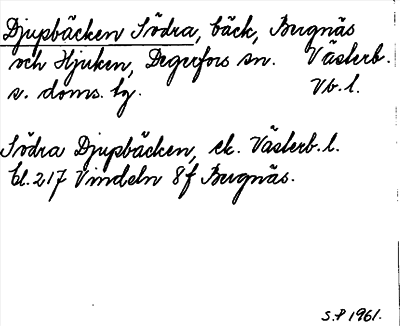 Djupbäcken Södra, bäck, Bergnäs
och Hjuken, Degerfors sn. Västerb.
s. doms. tg. Vb. l.
Södra Djupbäcken, ek. Västerb. l.
bl. 217 Vindeln 8f Bergnäs.
S.P 1961.